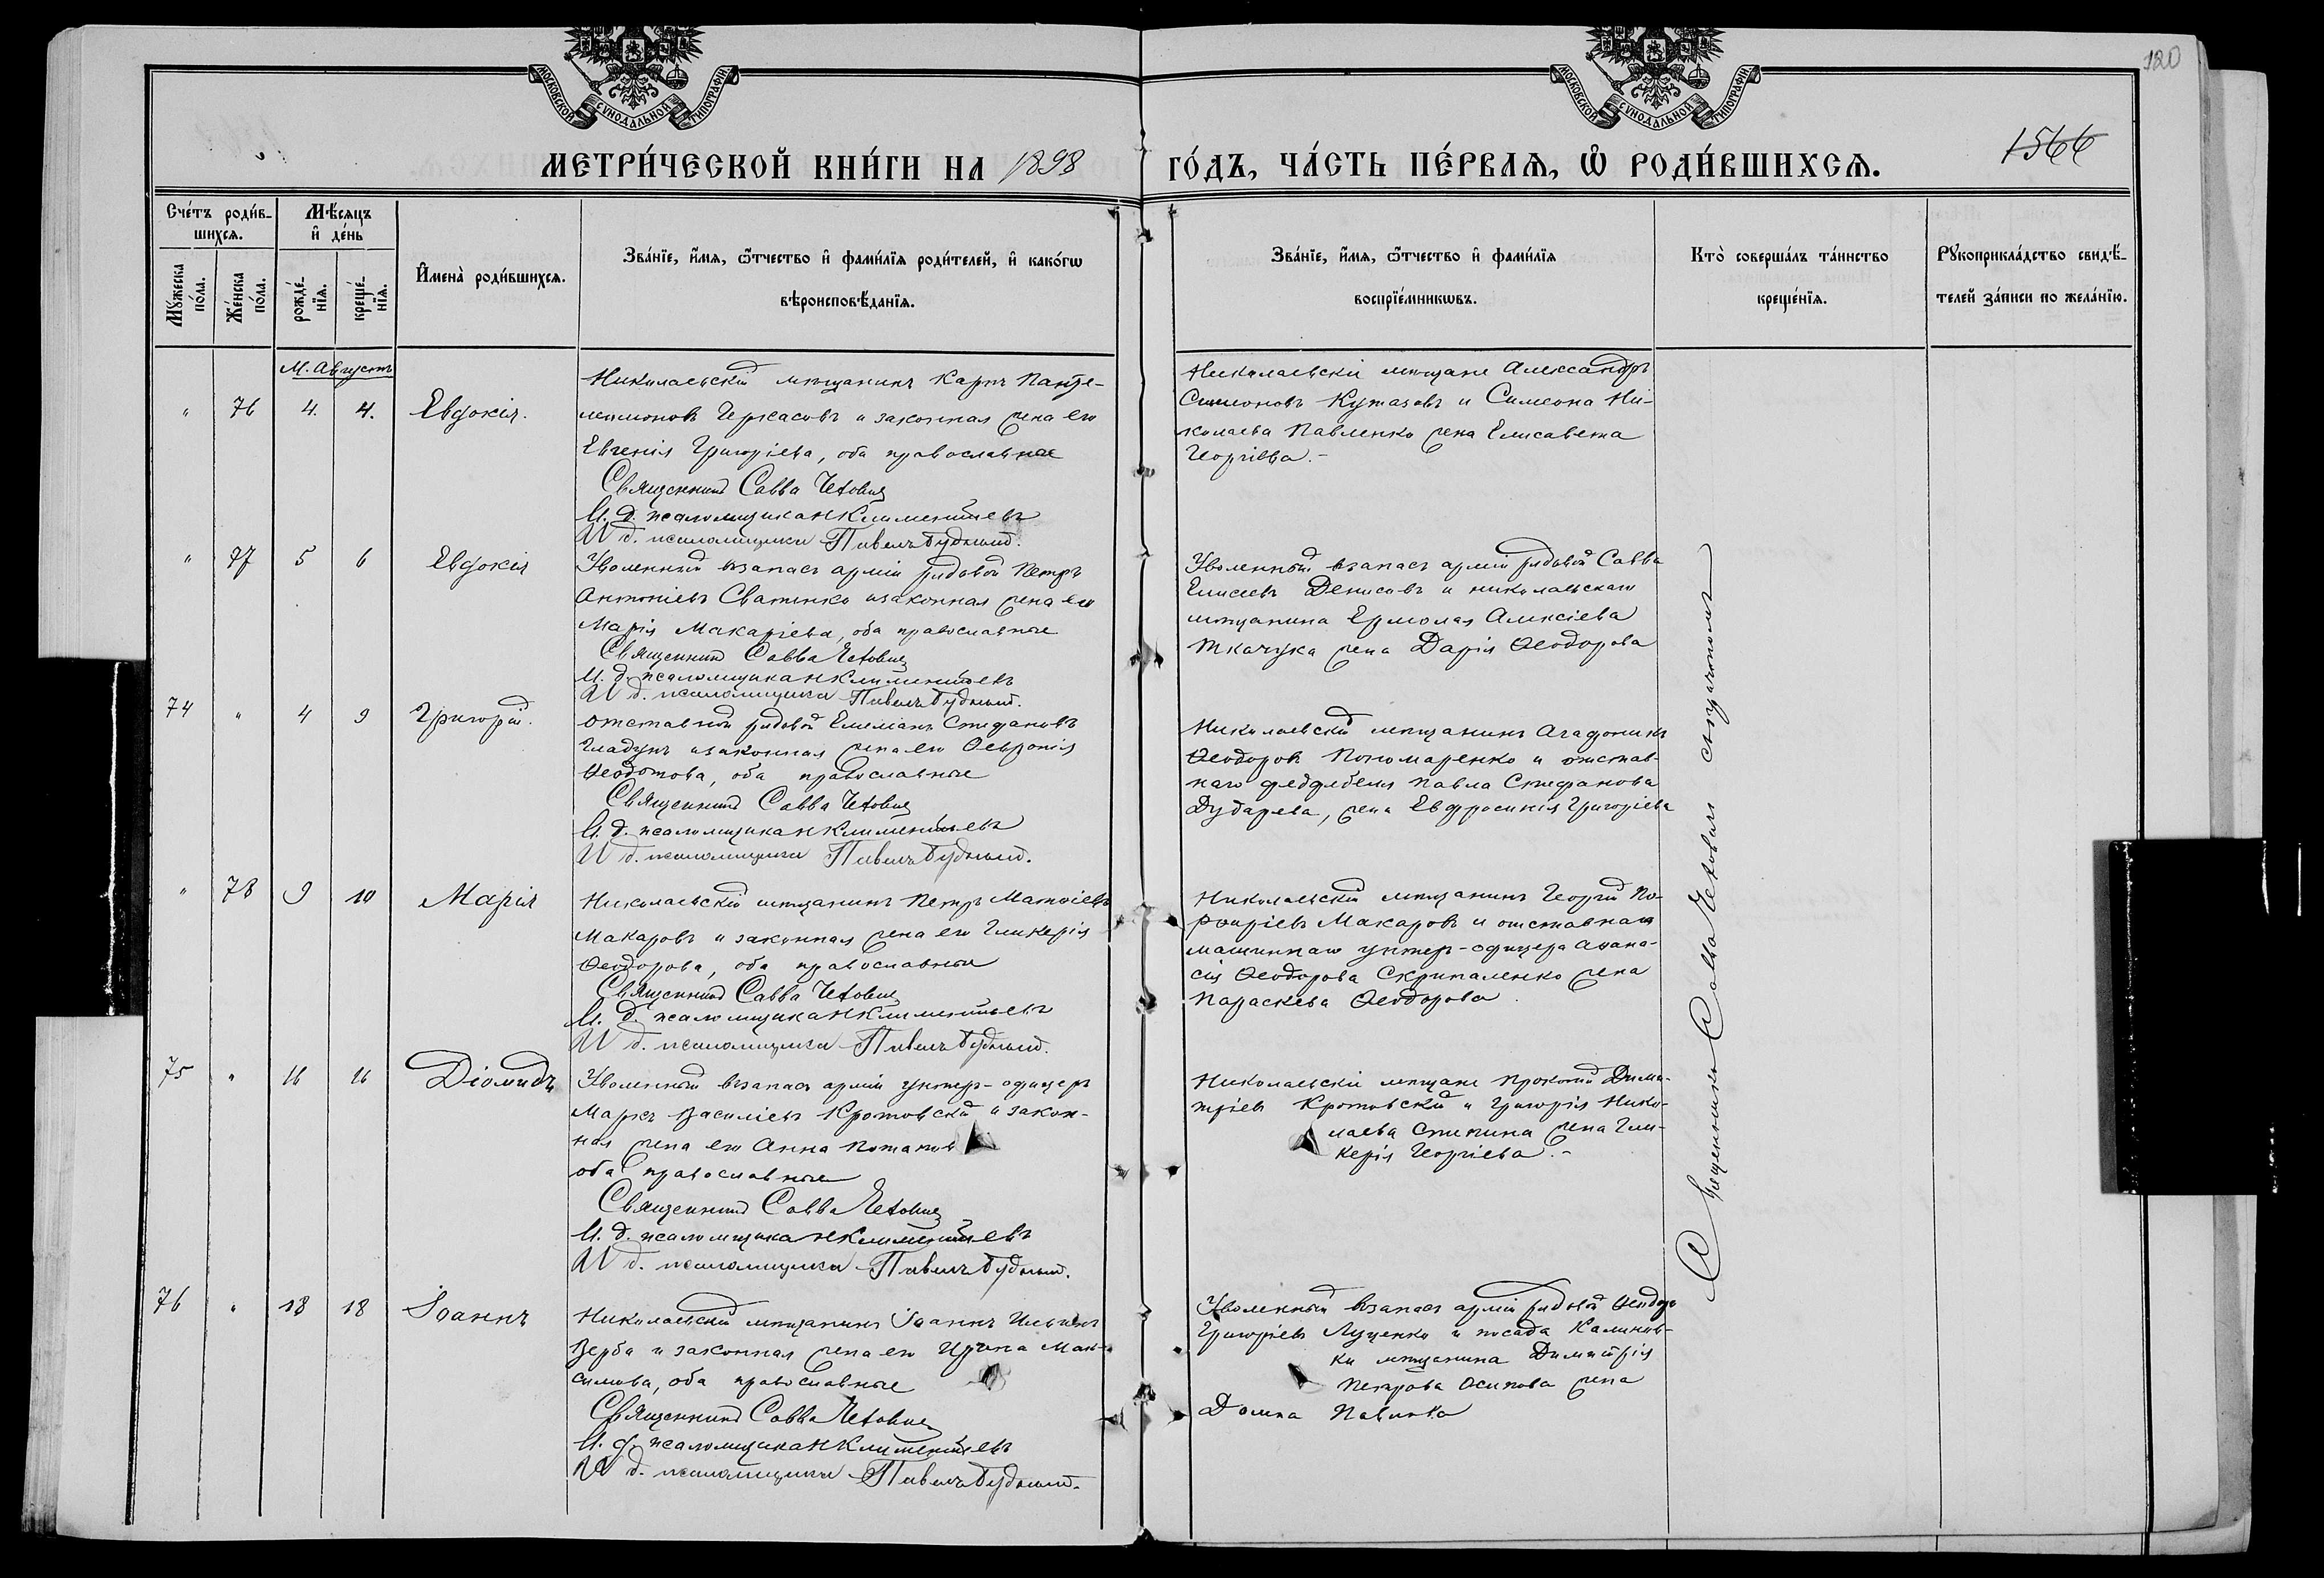 120
МОСКОВСКОЙ СѴНОДАЛЬНОЙ ТИПОГРАФІИ
МОСКОВСКОЙ СѴНОДАЛЬНОЙ ТИПОГРАФІИ
1566
МЕТРИ́ЧЕСКОЙ КНИ́ГИ НА 1898 ГО́ДЪ, ЧА́СТЬ ПЕ́РВАѦ, Ѽ РОДИ́ВШИХСѦ.
Сче́тъ роди́в-
шихсѧ.
Мꙋ́жеска по́ла.
Же́нска по́ла.
Мѣ́сѧцъ
и҆ де́нь
рожде́-
нїѧ.
креще́-
нїѧ.
И҆мена̀ роди́вшихсѧ.
Зва́нїе, и҆́мѧ, ѻ҆́тчество и҆ фами́лїѧ роди́телей, и҆ како́гѡ
вѣроисповѣ́данїѧ.
Зва́нїе, и҆́мѧ, ѻ҆́тчество и҆ фами́лїѧ
воспрїе́мникѡвъ.
Кто̀ соверша́лъ та́инство
креще́нїѧ.
Рꙋкоприкла́дство свидѣ́-
телей за́писи по жела́нїю.
М. Августъ
" 76 4. 4. Евдокія.
Николаевскій мѣщанинъ Карпъ Панте-
леимоновъ Черкасовъ и законная жена его
Евгенія Григоріева, оба православные
Священникъ Савва Чехович
И. д. псаломщика Н Климентьевъ
И д. псаломщика Павелъ Будный.
Николаевскіе мѣщане Александръ
Симеоновъ Кутазовъ и Симеона Ни-
колаева Павленко жена Елисавета
Георгіева.-
" 77 5 6 Евдокія
Уволенный въ запасъ арміи рядовой Петръ
Антоніевъ Сватенко и законная жена его
Марія Макаріева, оба православные
Священникъ Савва Чехович
И. д. псаломщика Н Климентьевъ
И д. псаломщика Павелъ Будный.
Уволенный въ запасъ арміи рядовой Савва
Елисеевъ Денисовъ и николаевскаго
мѣщанина Ермолая Алексіева
Ткачука жена Дарія Ѳеодорова
74 " 4 9 Григорій.
Отставной рядовой Емеліанъ Стефановъ
Гладунъ и законная жена его Ѳевронія
Ѳеодотова, оба православные
Священникъ Савва Чехович
И. д. псаломщика Н Климентьевъ
И д. псаломщика Павелъ Будный.
Николаевскій мѣщанинъ Агафоникъ
Ѳеодоровъ Пономаренко и отстав-
наго фельдфебеля Павла Стефанова
Дударева, жена Евфросинія Григоріева
" 78 9 10 Марія
Николаевскій мѣщанинъ Петръ Матѳіевъ
Макаровъ и законная жена его Гликерія
Ѳеодорова, оба православные
Священникъ Савва Чехович
И. д. псаломщика Н Климентьевъ
И д. псаломщика Павелъ Будный.
Николаевскій мѣщанинъ Георгій По-
рфиріевъ Макаровъ и отставнаго
машиннаго унтеръ-офицера Аѳана-
сія Ѳеодорова Скрипаленко жена
Параскева Ѳеодорова.
75 " 16 16 Діомидъ
Уволенный въ запасъ арміи унтеръ-офицеръ
Маркъ Василіевъ Кротовскій и закон-
ная жена его Анна Потапов
оба православные
Священникъ Савва Чехович
И. д. псаломщика Н Климентьевъ
И д. псаломщика Павелъ Будный.
Николаевскіе мѣщане Прокопій Дими-
тріевъ Кротовскій и Григорія Нико-
лаева Степина жена Гли-
керія Георгіева.-
76 " 18 18 Іоаннъ
Николаевскій мѣщанинъ Іоаннъ Ильинъ
Верба и законная жена его Ирина Мак-
симова, оба православные
Священникъ Савва Чехович
И. д. псаломщика Н Климентьевъ
И д. псаломщика Павелъ Будный.
Уволенный въ запасъ арміи рядовой Ѳеодоръ
Григоріевъ Луценко и посада Калинов-
ки мѣщанина Димитрія
Петрова Осипова жена
Домна Павлова
Священникъ Савва Чехович с псаломщикомъ